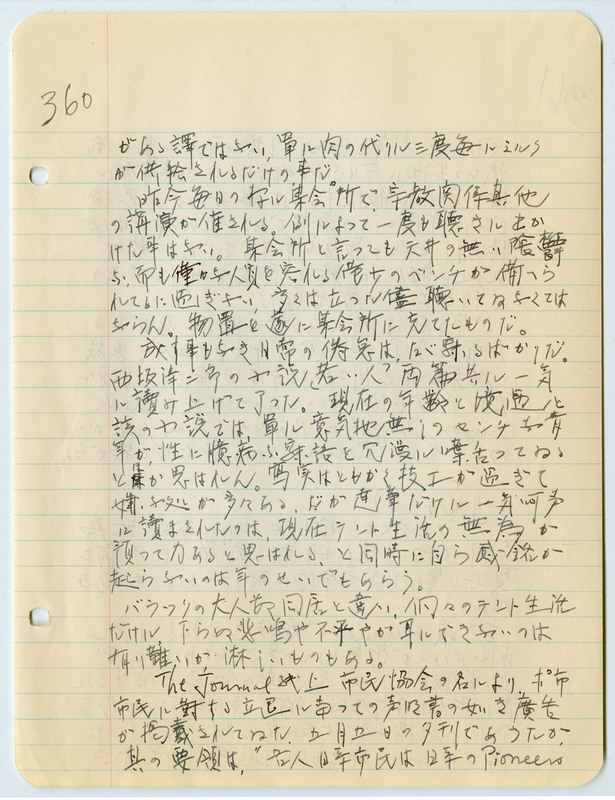 360
がある譯ではない、單に肉の代りに三度毎にミルク
が供給されるだけの事だ。
昨今毎日の様に集会所で、宗教関係其他
の講演が催される。例によって一度も聴きに出か
けた事はない。集会所と言っても天井の無い陰鬱
な、而も僅か人員を容れる僅少のベンチが備へら
れてるに過ぎない、多くは立った儘聴いてねなくては
ならん。物置を遂に集会所に充てたものだ。
事もなき日常の倦怠は、たゞ募るばかりだ。
の小説、若い人 両篇共に一気
に讀み上げて了った。現在の年齢と境遇と
該の小説では、單に意気地無しのセンチな青
年が性に臆病な 葉をってねる
としか思はれん。写実はともかく技工が過ぎて
嫌な処が多々ある、だが達筆だけに一気呵成
に讀まされたのは、現在テント生活の無為が
預って力あると思はれる、と同時に自ら感銘が
起らないのは年のせいでもあらう。
バラックの大人数同居と違い、個々のテント生活
だけに、下らぬ悲鳴や不平やが耳にできないのは
有難いが、淋しいものもある。
The Journal 紙上 市民協会の名により、ポ市
市民に對する立退に当っての声明書の如き廣告
が掲載されてねた、五月五日の夕刊であうたか、
其の要領は、"在人日系市民は日系のPioneers